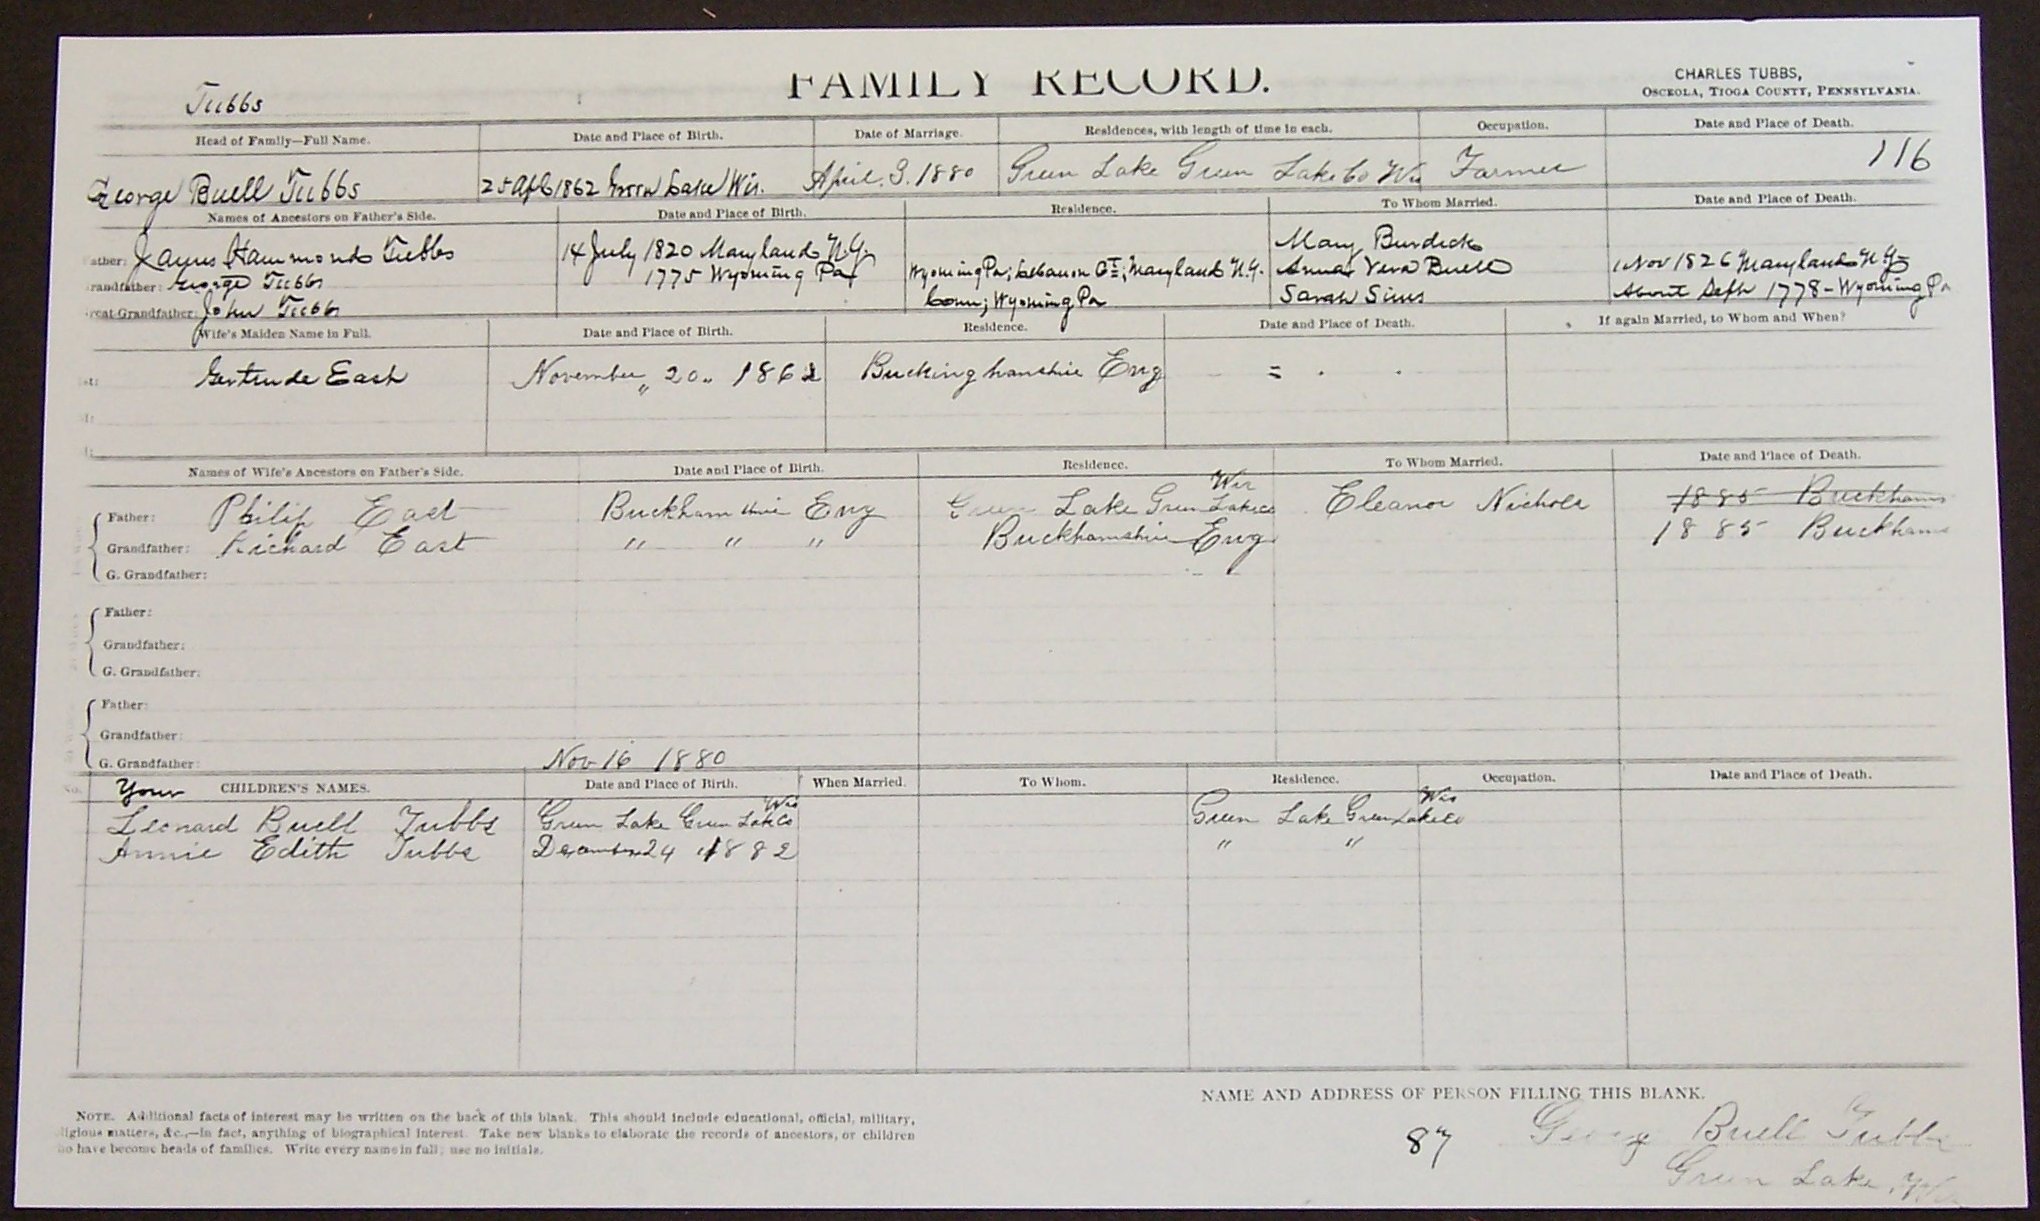 FAMILY RECORD.
CHARLES TUBBS,
OSCEOLA, TIOGA COUNTY, PENNSYLVANIA.
Tubbs
Head of Family—Full Name. Date and Place of Birth. Date of Marriage. Residences, with length of time in each. Occupation. Date and Place of Death.
116
George Buell Tubbs 25 Apl 1862 Green Lake Wis. April. 3. 1880 Green Lake Green Lake Co Wis Farmer
Names of Ancestors on Father's Side. Date and Place of Birth. Residence. To Whom Married. Date and Place of Death.
ather: James Hammond Tubbs 14 July 1820 Maryland N.Y. Mary Burdick
randfather: George Tubbs 1775 Wyoming Pa Wyoming Pa; Lebanon CT; Maryland N.Y. Anna Vera Buell 1 Nov 1826 Maryland N.Y.
reat Grandfather: John Tubbs Conn; Wyoming Pa Sarah Sims About Sept 1778 - Wyoming Pa
Wife's Maiden Name in Full. Date and Place of Birth. Residence. Date and Place of Death. If again Married, to Whom and When?
Gertrude East November " 20 " 1862 Buckinghamshire Eng = . .
Names of Wife's Ancestors on Father's Side. Date and Place of Birth. Residence. To Whom Married. Date and Place of Death.
Wis
Father: Philip East Buckhamshire Eng Green Lake Green Lake Co Eleanor Nichols 1885 Buckhams
Grandfather: Richard East " " " Buckhamshire Eng 1885 Buckhams
G. Grandfather:
Father:
Grandfather:
G. Grandfather:
Father:
Grandfather:
G. Grandfather: Nov 16 1880
Your CHILDREN'S NAMES. Date and Place of Birth. When Married. To Whom. Residence. Occupation. Date and Place of Death.
Wis Wis
Leonard Buell Tubbs Green Lake Green Lake Co Green Lake Green Lake Co
Annie Edith Tubbs December 24 " 1882 " "
NAME AND ADDRESS OF PERSON FILLING THIS BLANK.
NOTE. Additional facts of interest may be written on the back of this blank. This should include educational, official, military,
ligious matters, &c.,—In fact, anything of biographical interest. Take new blanks to elaborate the records of ancestors, or children
ho have become heads of families. Write every name in full; use no initials.
87 George Buell Tubbs
Green Lake, Wis